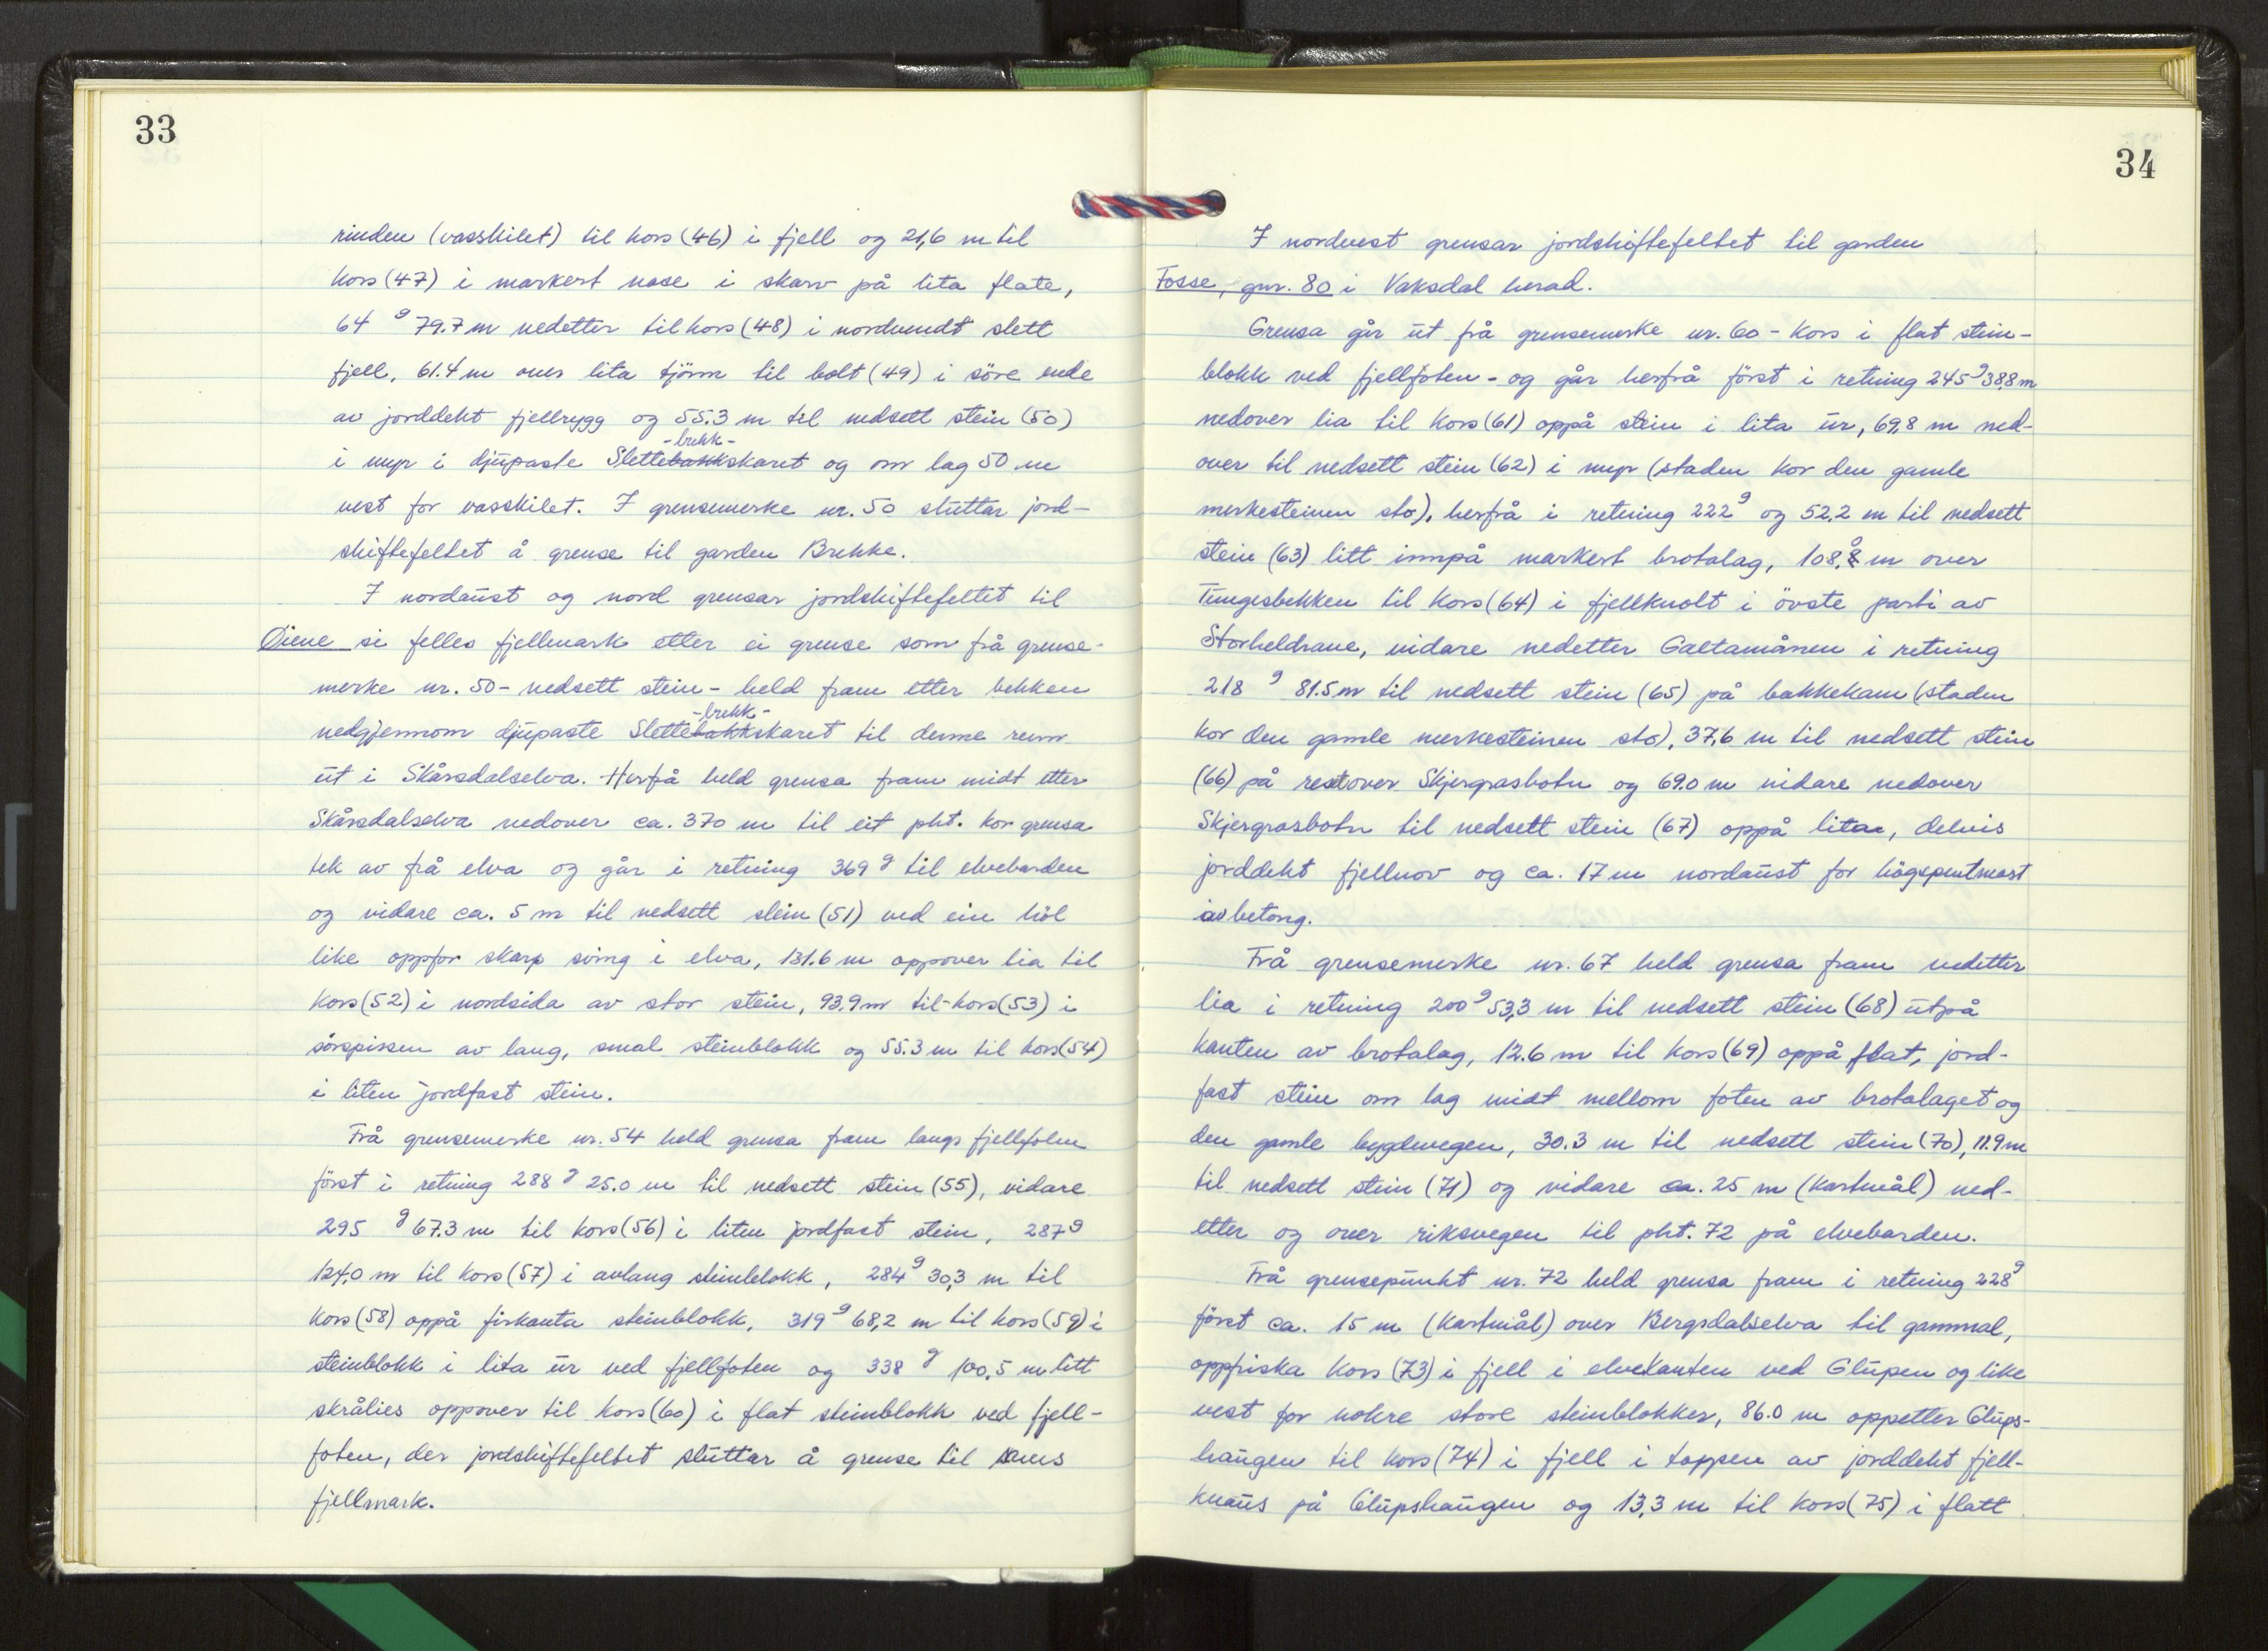 33
rinden (vasskilet) til kors (46) i fjell og 21,6 m til
kors (47) i markert nase i skarv på lita flate,
64 g 79.7 m nedetter til kors (48) i nordvendt slett
fjell, 61.4 m over lita tjörn til bolt (49) i söre ende
av jorddekt fjellrygg og 55.3 m til nedsett stein (50)
-brekk-
i myr i djupaste Slettebakkskaret og om lag 50 m
vest for vasskilet. I grensemerke nr. 50 sluttar jord-
skiftefeltet å grense til garden Brekke.
I nordaust og nord grensar jordskiftefeltet til
Öiene si felles fjellmark etter ei grense som frå grense-
merke nr. 50 - nedsett stein - held fram etter bekken
-brekk-
nedgjennom djupaste Slettebakkskaret til denne renn
ut i Skårsdalselva. Herfrå held grensa fram midt etter
Skårsdalselva nedover ca. 370 m til eit pkt. kor grensa
tek av frå elva og går i retning 369 g til elvebarden
og vidare ca. 5 m til nedsett stein (51) ved ein höl
like oppfor skarp sving i elva, 131.6 m oppover lia til
kors (52) i nordsida av stor stein, 93.9 m til kors (53) i
sörspissen av lang, smal steinblokk og 55.3 m til kors (54)
i liten jordfast stein.
Frå grensemerke nr. 54 held grensa fram langs fjellfoten
först i retning 288 g 25.0 m til nedsett stein (55), vidare
295 g 67.3 m til kors (56) i liten jordfast stein, 287 g
124,0 m til kors (57) i avlang steinblokk, 284 g 30,3 m til
kors (58) oppå firkanta steinblokk, 319 g 68,2 m til kors (59) i
steinblokk i lita ur ved fjellfoten og 338 g 100,5 m litt
skrålies oppover til kors (60) i flat steinblokk ved fjell-
foten, der jordskiftefeltet sluttar å grense til
fjellmark.
34
I nordvest grensar jordskiftefeltet til garden
Fosse, gnr. 80 i Vaksdal herad.
Grensa går ut frå grensemerke nr. 60 - kors i flat stein-
blokk ved fjellfoten - og går herfrå först i retning 245 g 38,8 m
nedover lia til kors (61) oppå stein i lita ur, 69,8 m ned-
over til nedsett stein (62) i myr (staden kor den gamle
merkesteinen sto), herfrå i retning 222 g og 52,2 m til nedsett
stein (63) litt innpå markert brotalag, 108.8 m over
Tungesbekken til kors (64) i fjellknolt i övste parti av
Storheldrane, vidare nedetter Galtamånen i retning
218 g 81.5 m til nedsett stein (65) på bakkekam (staden
kor den gamle merkesteinen sto), 37,6 m til nedsett stein
(66) på restover Skjergrasbotn og 69.0 m vidare nedover
Skjergrasbotn til nedsett stein (67) oppå lita, delvis
jorddekt fjellnov og ca. 17 m nordaust for högspentmast
av betong.
Frå grensemerke nr. 67 held grensa fram nedetter
lia i retning 200 g 53,3 m til nedsett stein (68) utpå
kanten av brotalag, 12.6 m til kors (69) oppå flat, jord-
fast stein om lag midt mellom foten av brotalaget og
den gamle bygdevegen, 30.3 m til nedsett stein (70), 11.9 m
til nedsett stein (71) og vidare ca. 25 m (kartmål) ned-
etter og over riksvegen til pkt. 72 på elvebarden.
Frå grensepunkt nr. 72 held grensa fram i retning 228 g
först ca. 15 m (kartmål) over Bergsdalselva til gammal,
oppfriska kors (73) i fjell i elvekanten ved Glupen og like
vest for nokre store steinblokker, 86.0 m oppetter Glups-
haugen til kors (74) i fjell i toppen av jorddekt fjell-
knaus på Glupshaugen og 13,3 m til kors (75) i flatt